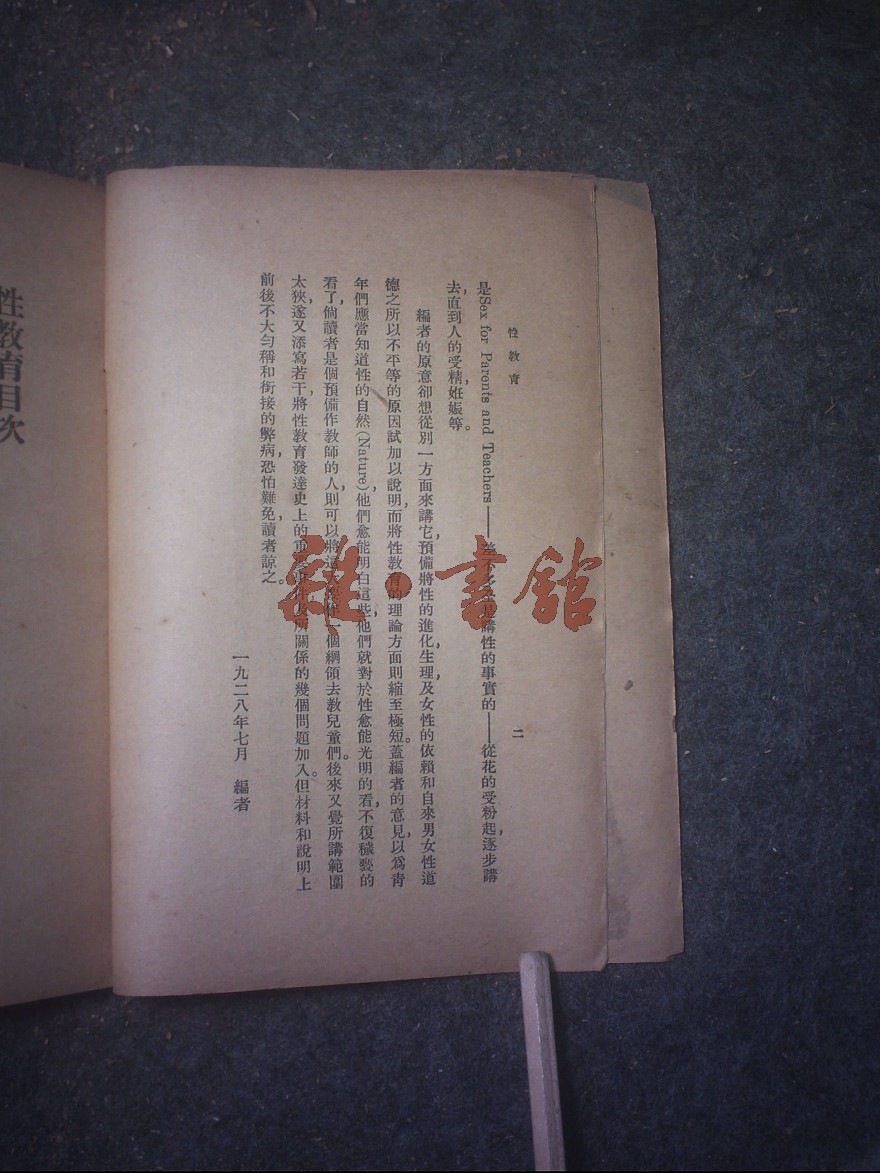 性教育
二
是Sex for Parents and Teachers——差不多全是講性的事實的——從花的受粉起，逐步講
去，直到人的受精妊娠等。
編者的原意卻想從別一方面來講它，預備將性的進化，生理，及女性的依賴和自來男女性道
德之所以不平等的原因試加以說明，而將性教育的理論方面則縮至極短。蓋編者的意見，以爲靑
年們應當知道性的自然(Nature)，他們愈能明白這些，他們就對於性愈能光明的看，不復穢褻的
看了，倘讀者是個預備作教師的人，則可以將這一個綱領去教兒童們。後來又覺所講範圍
太狹，遂又添寫若干，將性教育發達史上的重要事件及所關係的幾個問題加入。但材料和說明上
前後不大勻稱和銜接的弊病，恐怕難免，讀者諒之。
一九二八年七月　編者
性教育目次
雜·書館